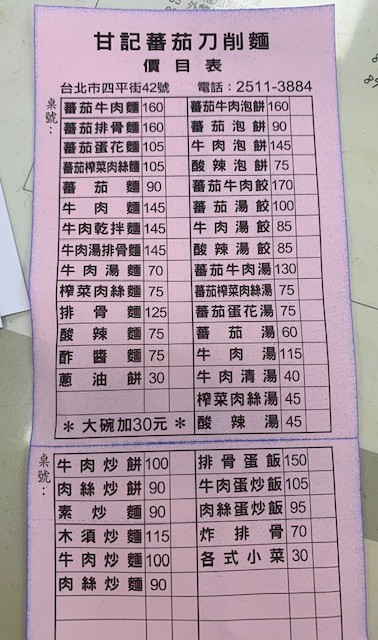 甘記蕃茄刀削麵
價目表
台北市四平街42號 電話：2511-3884
桌號：
蕃茄牛肉麵 160 蕃茄牛肉泡餅 160
蕃茄排骨麵 160 蕃茄泡餅 90
蕃茄蛋花麵 105 牛肉泡餅 145
蕃茄榨菜肉絲麵 105 酸辣泡餅 75
蕃茄麵 90 蕃茄牛肉餃 170
牛肉麵 145 蕃茄湯餃 100
牛肉乾拌麵 145 牛肉湯餃 85
牛肉湯排骨麵 145 酸辣湯餃 85
牛肉湯麵 70 蕃茄牛肉湯 130
榨菜肉絲麵 75 蕃茄榨菜肉絲湯 75
排骨麵 125 蕃茄蛋花湯 75
酸辣麵 75 蕃茄湯 60
酢醬麵 75 牛肉湯 115
蔥油餅 30 牛肉清湯 40
榨菜肉絲湯 45
＊大碗加30元＊ 酸辣湯 45
桌號：
牛肉炒餅 100 排骨蛋飯 150
肉絲炒餅 90 牛肉蛋炒飯 105
素炒麵 90 肉絲蛋炒飯 95
木須炒麵 115 炸排骨 70
牛肉炒麵 100 各式小菜 30
肉絲炒麵 90